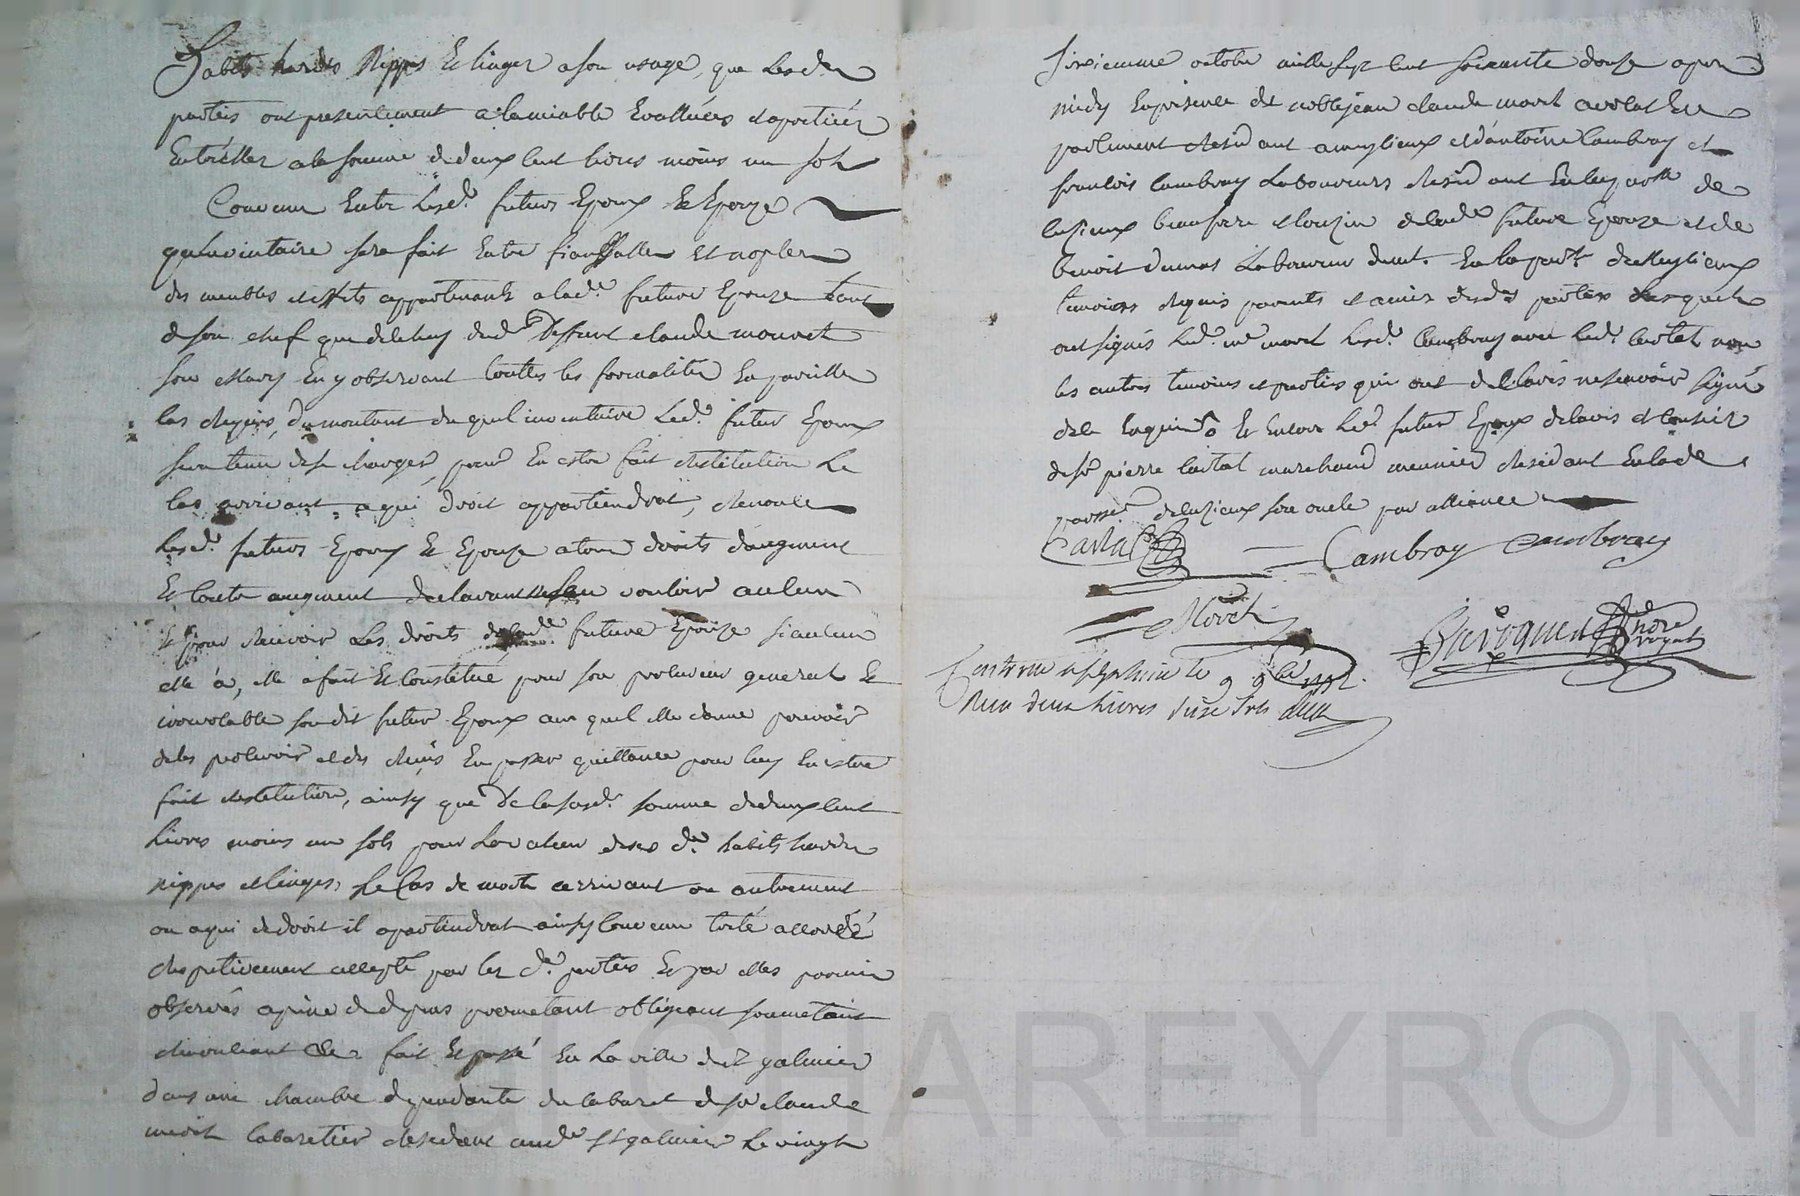 habits hardes Nippes Et linges a son usage, que Lesd.
parties ont presentement a lamiable Evalluées et apretiées
Entr'Elles a la somme de deux Cent livres moins un sols
Convenu Entre Lesd. futurs Epoux Et Epouze
qu'inventaire sera fait Entre fiansalles et nopses
des meubles et effets appartenants a lad. future Epouze tant
de son chef que de celuy dud. deffunt claude mouret
son Mary En y observant touttes les formalités En pareille
cas requises, du montant duquel inventaire Led. futur Epoux
sera tenu de se charger, pour En estre fait restitution Le
Cas arrivant a qui droit appartiendrat, renonce
Lesd. futurs Epoux Et Epouze a tous droits d'augment
Et Contre augment declarant n'en vouloir aucun
Et pour recevoir Les droits de lad. future Epouze si aucun
elle a, elle a fait Et Constitué pour son procureur general Et
irrevocable son dit futur Epoux au quel elle donne pouvoir
de les percevoir et des reçus En passer quittance pour luy En estre
fait restitution, ainsy que de la susd. somme de deux Cent
Livres moins un sols pour La valeur de ses d. habits hardes
nippes et linges, Le Cas de mort arrivant ou autrement
ou a qui de droit il apartiendrat ainsy Convenu traité accordé
respectivement accepté par les d. parties Et par elles promis
observer a peine de depens promettant obligeant soumetant
renonciant Et fait Et passé En La ville de St galmier
dans une chambre dependante du Cabaret de sr claude
Cabaretier residant aud. St galmier Le vingt
sixiemme octobre mille sept Cent soixante douze apres
midy En presence de noble jean claude moret avocat En
parlement residant a meylieux et d'antoine Cambray et
francois Cambray Laboureurs residant En la parr. de
Cuzieux beaufrere et Couzin de lad. future Epouze et de
benoit dumas Laboureur demt. En la parr. de Meylieux
temoins requis parents et amis desd. parties Lesquels
ont signés Led. me moret Lesd. Cambray avec Led. Cartal non
les autres temoins et parties qui ont declarés ne sçavoir signé
de ce Enquis Et Encore Led. futur Epoux de lavis et Conseil
de sr pierre Cartal marchand meunier residant En lade.
parroisse de Cuzieux son oncle par alliance
Cartal Cambray Cambray
Moret
notre royal
Controlé a St galmier le 9 9bre 1772.
Reçu deux livres seize sols